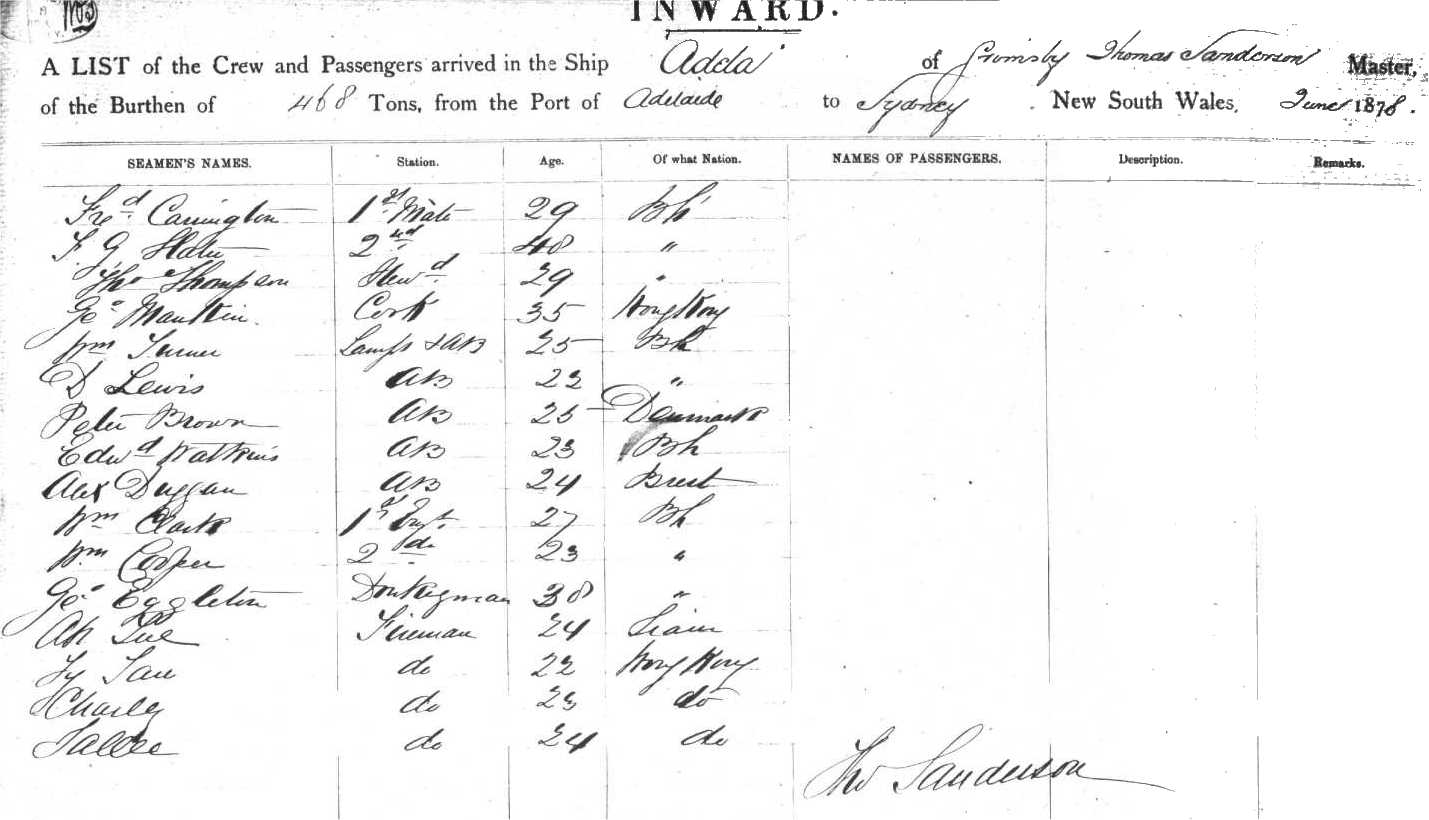 INWARD.
A LIST of the Crew and Passengers arrived in the Ship Adela of Grimsby Thomas Sanderson Master,
of the Burthen of 468 Tons, from the Port of Adelaide to Sydney New South Wales, June 1878.
SEAMEN'S NAMES. Station. Age. Of what Nation. NAMES OF PASSENGERS. Description. Remarks.
Fred. Carrington 1st Mate 29 Bh
F G Slater 2nd 48 "
Tho Thompson Stewd. 29 "
Geo Mankin. Cook 35 Hong Kong
Wm Turner Lamps & AB 25 Bh
D Lewis AB 22 "
Peter Brown AB 25 Denmark
Edwd Watkins AB 23 Bh
Alex Duggan AB 24 Brest
Wm Clark 1st 27 Bh
Wm Cooper 2 do 23 "
Geo Eggleton Donkeyman 38 "
Ah Fireman 24 Siam
do 22 Hong Kong
Charley do 23 do
do 24 do
Tho Sanderson